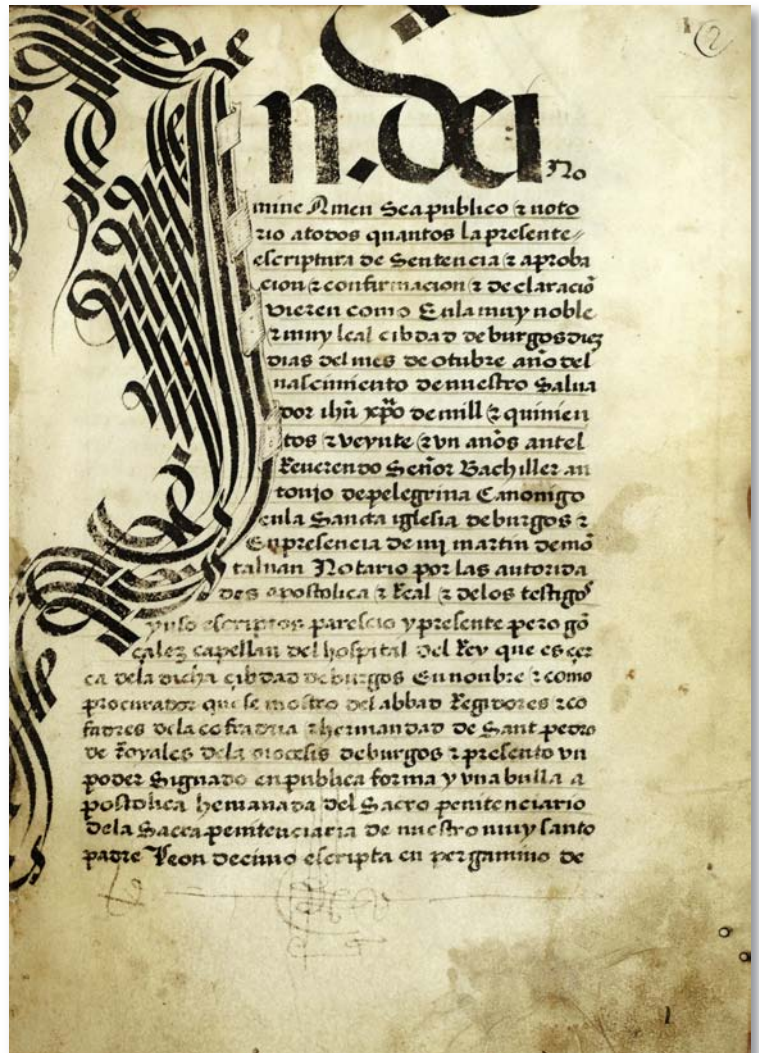 2
In. dei No
mine Amen Sea publico ⁊ noto
rio atodos quantos la presente
escriptura de Sentencia ⁊ aproba
cion ⁊ confirmacion ⁊ de claracio͂
vieren como Enla muy noble
⁊ muy leal cibdad de burgos diez
dias del mes de otubre año del
nascimiento de nuestro Salua
dor ihū xp̄o de mill ⁊ quinien
tos ⁊ veynte ⁊ vn años antel
Reuerendo Señor Bachiller an
tonio de pelegrina Canonigo
enla Sancta iglesia de burgos ⁊
En presencia de mi martin de mō
taluan Notario por las autorida
des apostolica ⁊ Real ⁊ delos testigos
yuso escriptos parescio y presente pero gō
çalez capellan del hospital del Rey que es çer
ca dela dicha çibdad de burgos En nonbre ⁊ como
procurator que se mostro del abbad Regidores ⁊ co
fadres dela cofradria ⁊ hermandad de Sant pedro
de dela diocesis de burgos ⁊ presento vn
poder Signado en publica forma y vna bulla a
postolica hemanada del Sacro penitenciario
dela Sacra penitenciaria de nuestro muy santo
padre Leon decimo escripta en pergamino de
1